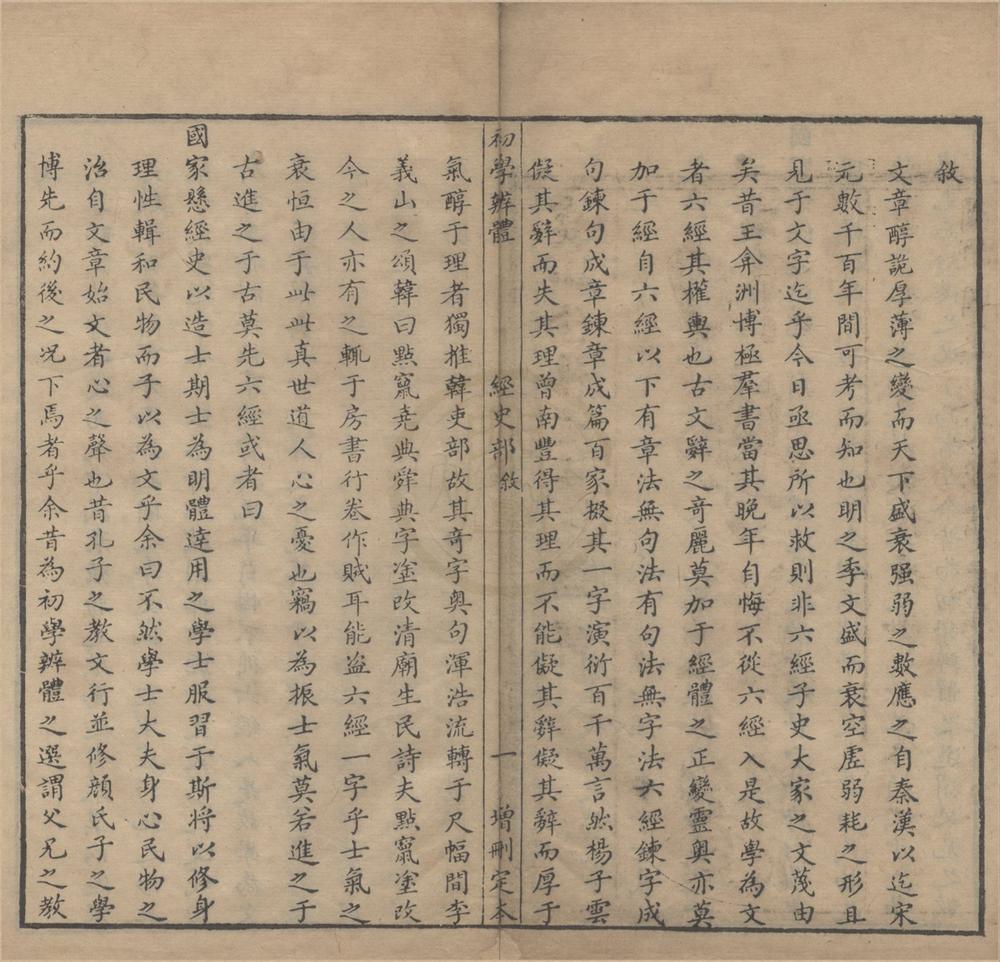 敘
文章醇詭厚薄之變而天下盛衰强弱之數應之自秦漢以迄宋
元數千百年間可考而知也明之季文盛而衰空虛弱耗之形且
見于文字迄乎今日亟思所以救則非六經子史大家之文蔑由
矣昔王弇洲博極羣書當其晚年自悔不從六經入是故學為文
者六經其權輿也古文辭之奇麗莫加于經體之正變靈奥亦莫
加于經自六經以下有章法無句法有句法無字法六經鍊字成
句鍊句成章鍊章成篇百家掇其一字演衍百千萬言然楊子雲
儗其辭而失其理曾南豐得其理而不能儗其辭儗其辭而厚于
初學辨體 經史部敘 一 增刪定本
氣醇于理者獨推韓吏部故其奇字奥句渾浩流轉于尺幅間李
義山之頌韓曰點竄堯典舜典字塗改清廟生民詩夫點竄塗改
今之人亦有之輒于房書行卷作賊耳能盗六經一字乎士氣之
衰恒由于此此真世道人心之憂也竊以為振士氣莫若進之于
古進之于古莫先六經或者曰
國家懸經史以造士期士為明體達用之學士服習于斯將以修身
理性輯和民物而子以為文乎余曰不然學士大夫身心民物之
治自文章始文者心之聲也昔孔子之教文行並修顔氏子之學
博先而約後之况下焉者乎余昔為初學辨體之選謂父兄之教